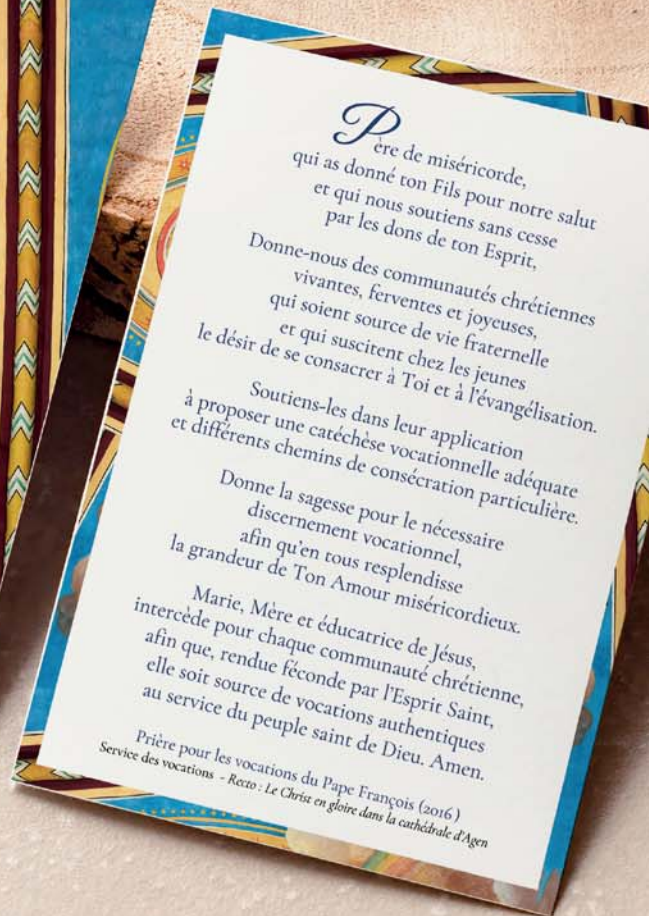 Père de miséricorde,
qui as donné ton Fils pour notre salut
et qui nous soutiens sans cesse
par les dons de ton Esprit,
Donne-nous des communautés chrétiennes
vivantes, ferventes et joyeuses,
qui soient source de vie fraternelle
et qui suscitent chez les jeunes
le désir de se consacrer à Toi et à l'évangélisation.
Soutiens-les dans leur application
à proposer une catéchèse vocationnelle adéquate
et différents chemins de consécration particulière.
Donne la sagesse pour le nécessaire
discernement vocationnel,
afin qu'en tous resplendisse
la grandeur de Ton Amour miséricordieux.
Marie, Mère et éducatrice de Jésus,
intercède pour chaque communauté chrétienne,
afin que, rendue féconde par l'Esprit Saint,
elle soit source de vocations authentiques
au service du peuple saint de Dieu. Amen.
Prière pour les vocations du Pape François (2016 )
Service des vocations - Recto : Le Christ en gloire dans la cathédrale d'Agen